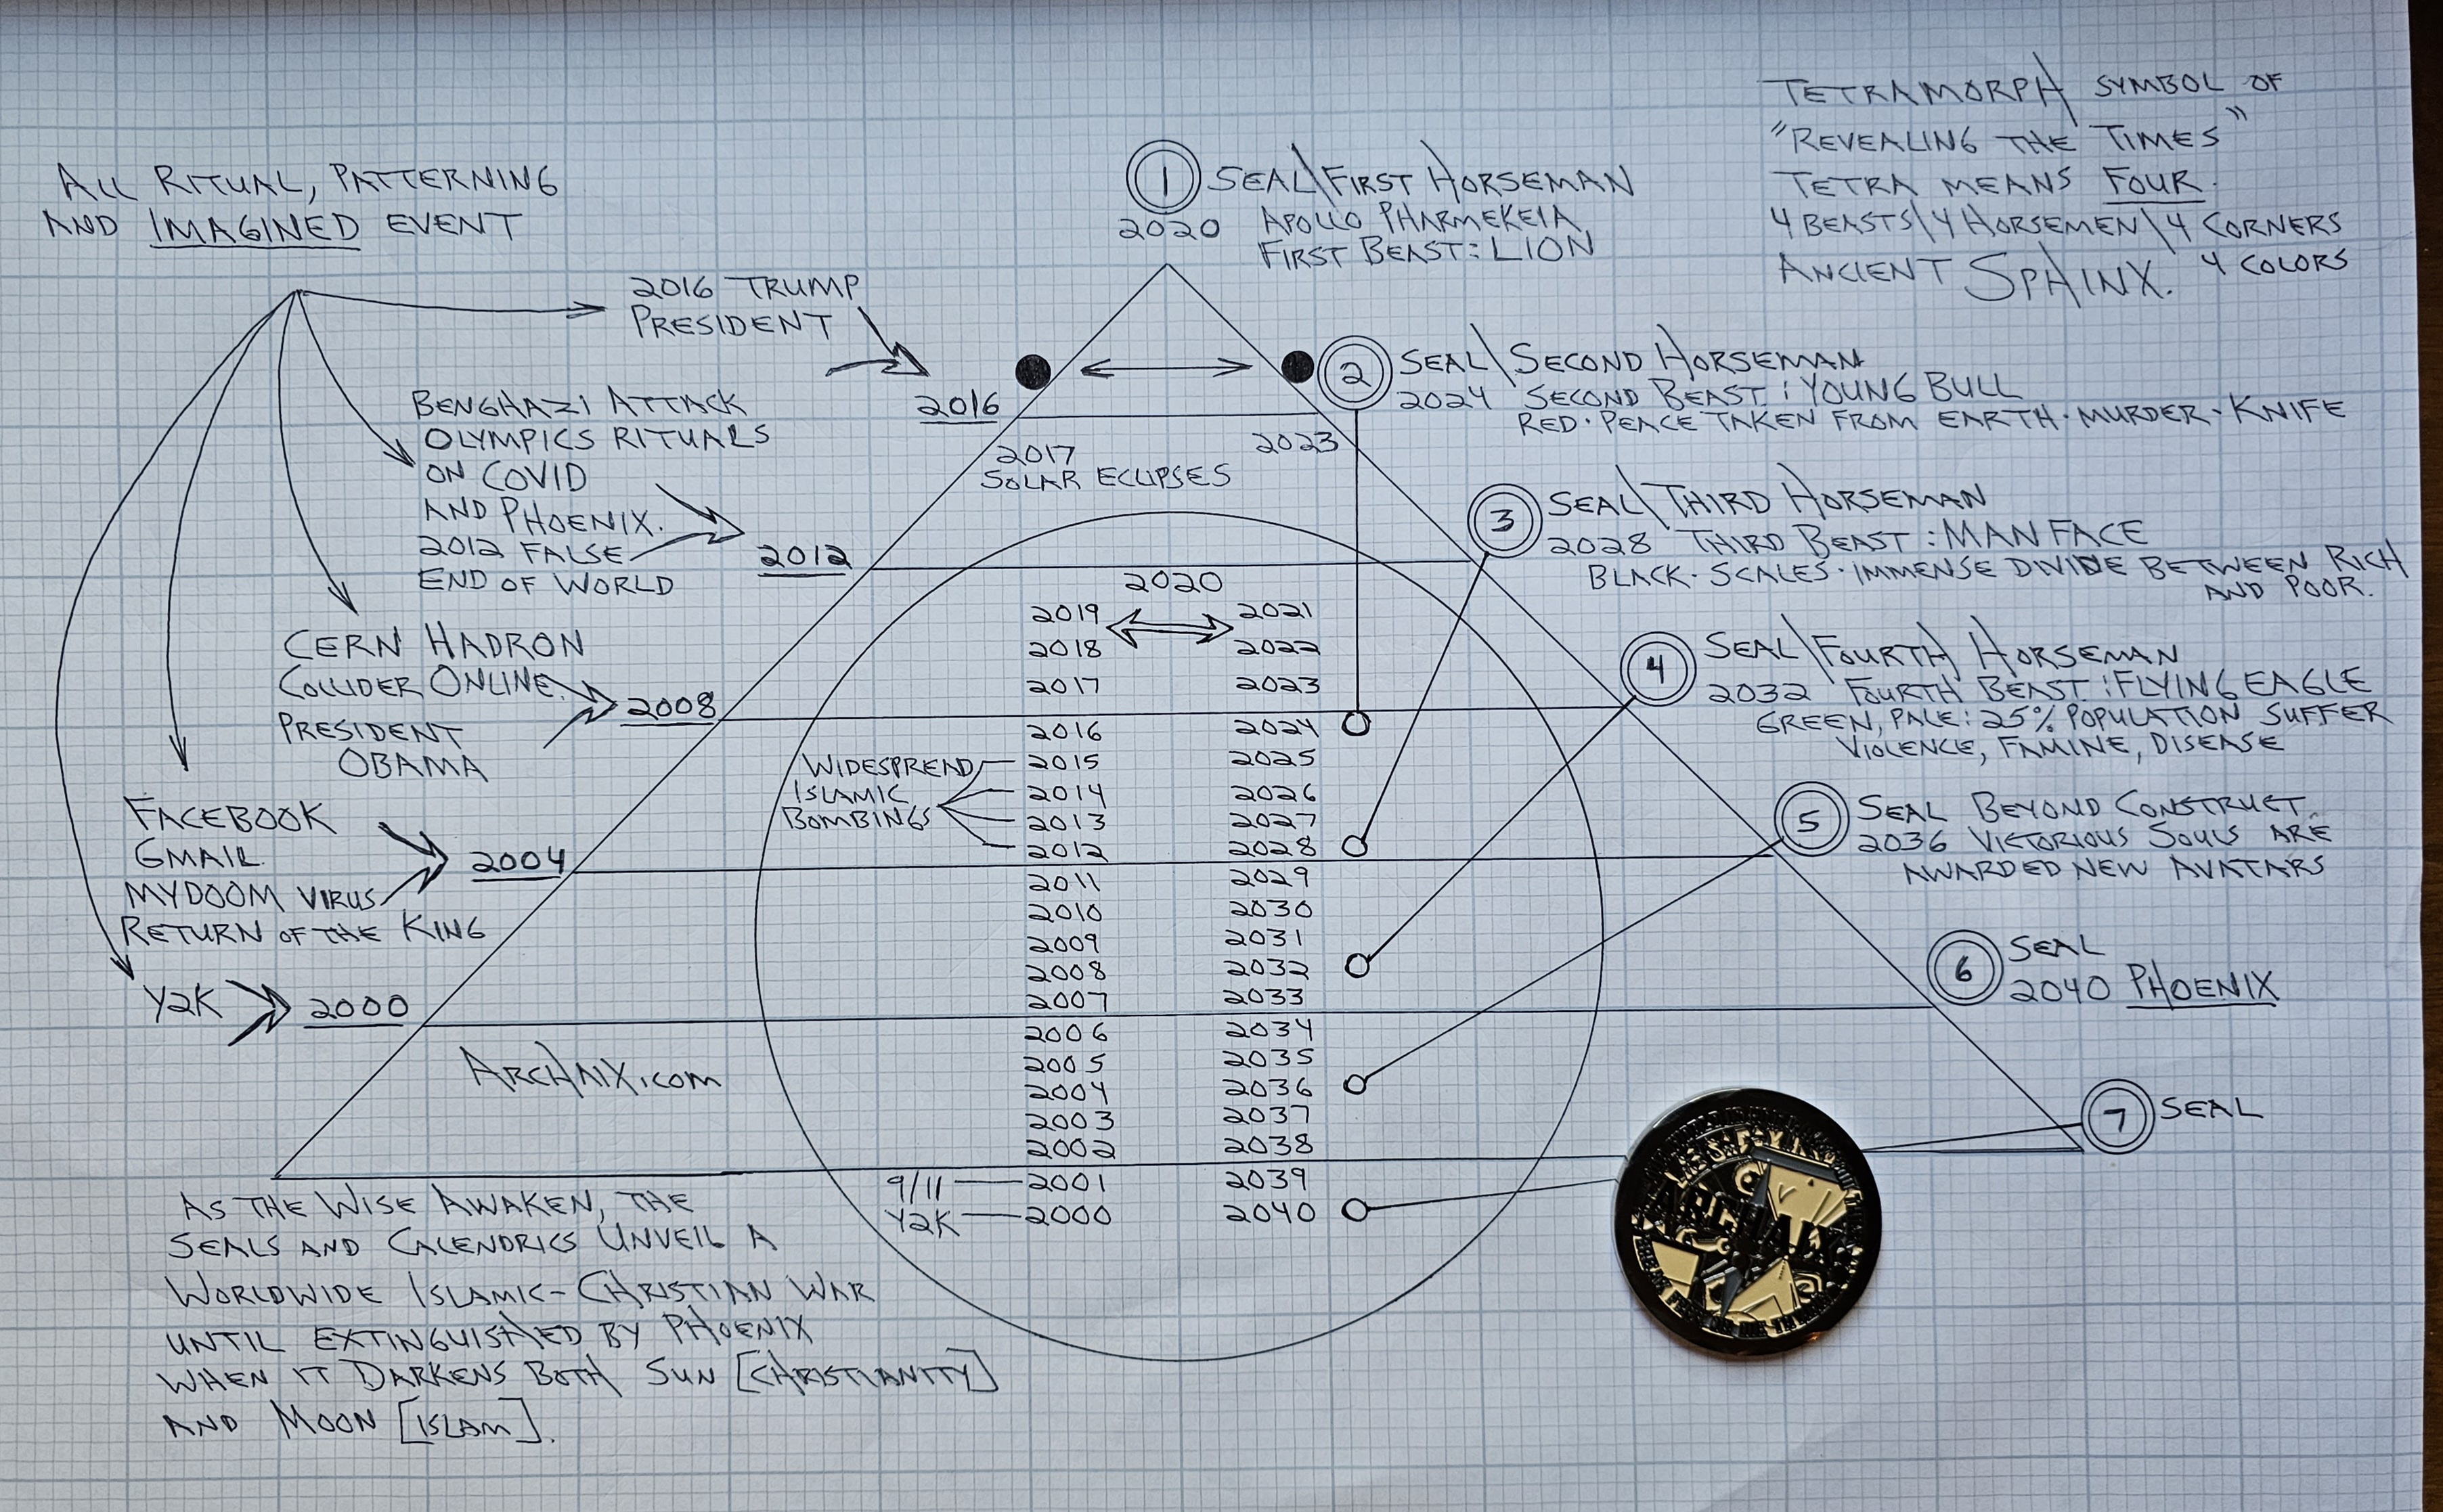 TETRAMORPH SYMBOL OF
"REVEALING THE TIMES"
TETRA MEANS FOUR.
4 BEASTS\4 HORSEMEN\4 CORNERS
4 COLORS
ANCIENT SPHINX.
ALL RITUAL, PATTERNING
AND IMAGINED EVENT
1 SEAL\FIRST HORSEMAN
2020 APOLLO PHARMEKEIA
FIRST BEAST: LION
2016 TRUMP
PRESIDENT
2016
2 SEAL\SECOND HORSEMAN
2024 SECOND BEAST: YOUNG BULL
RED·PEACE TAKEN FROM EARTH·MURDER·KNIFE
2017 2023
SOLAR ECLIPSES
BENGHAZI ATTACK
OLYMPICS RITUALS
ON COVID
AND PHOENIX.
2012 FALSE
END OF WORLD
2012
3 SEAL\THIRD HORSEMAN
2028 THIRD BEAST: MAN FACE
BLACK·SCALES·IMMENSE DIVIDE BETWEEN RICH
AND POOR.
CERN HADRON
COLLIDER ONLINE.
PRESIDENT
OBAMA
2008
4 SEAL\FOURTH HORSEMAN
2032 FOURTH BEAST: FLYING EAGLE
GREEN, PALE: 25% POPULATION SUFFER
VIOLENCE, FAMINE, DISEASE
FACEBOOK
GMAIL
MYDOOM VIRUS
RETURN OF THE KING
2004
5 SEAL BEYOND CONSTRUCT.
2036 VICTORIOUS SOULS ARE
AWARDED NEW AVATARS
Y2K
2000
6 SEAL
2040 PHOENIX
7 SEAL
2020
2019 2021
2018 2022
2017 2023
2016 2024
WIDESPREAD
ISLAMIC
BOMBINGS
2015 2025
2014 2026
2013 2027
2012 2028
2011 2029
2010 2030
2009 2031
2008 2032
2007 2033
2006 2034
2005 2035
2004 2036
2003 2037
2002 2038
9/11 2001 2039
Y2K 2000 2040
ARCHAIX.COM
AS THE WISE AWAKEN, THE
SEALS AND CALENDRICS UNVEIL A
WORLDWIDE ISLAMIC-CHRISTIAN WAR
UNTIL EXTINGUISHED BY PHOENIX
WHEN IT DARKENS BOTH SUN [CHRISTIANITY]
AND MOON [ISLAM].